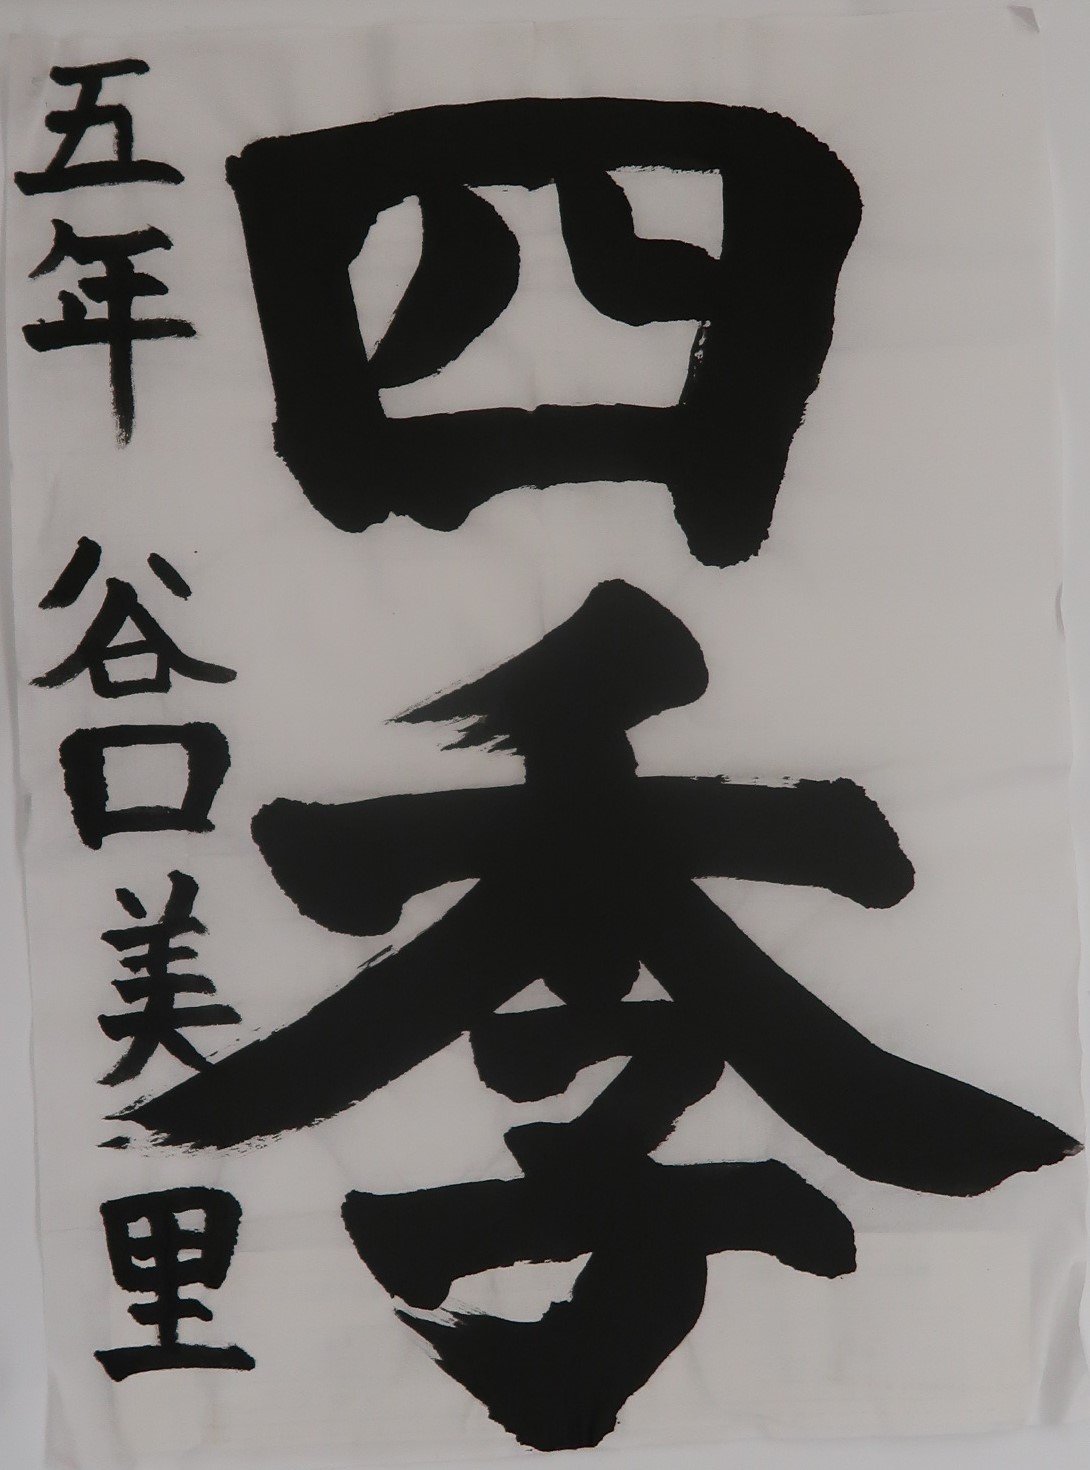 四季
五年 谷口美里